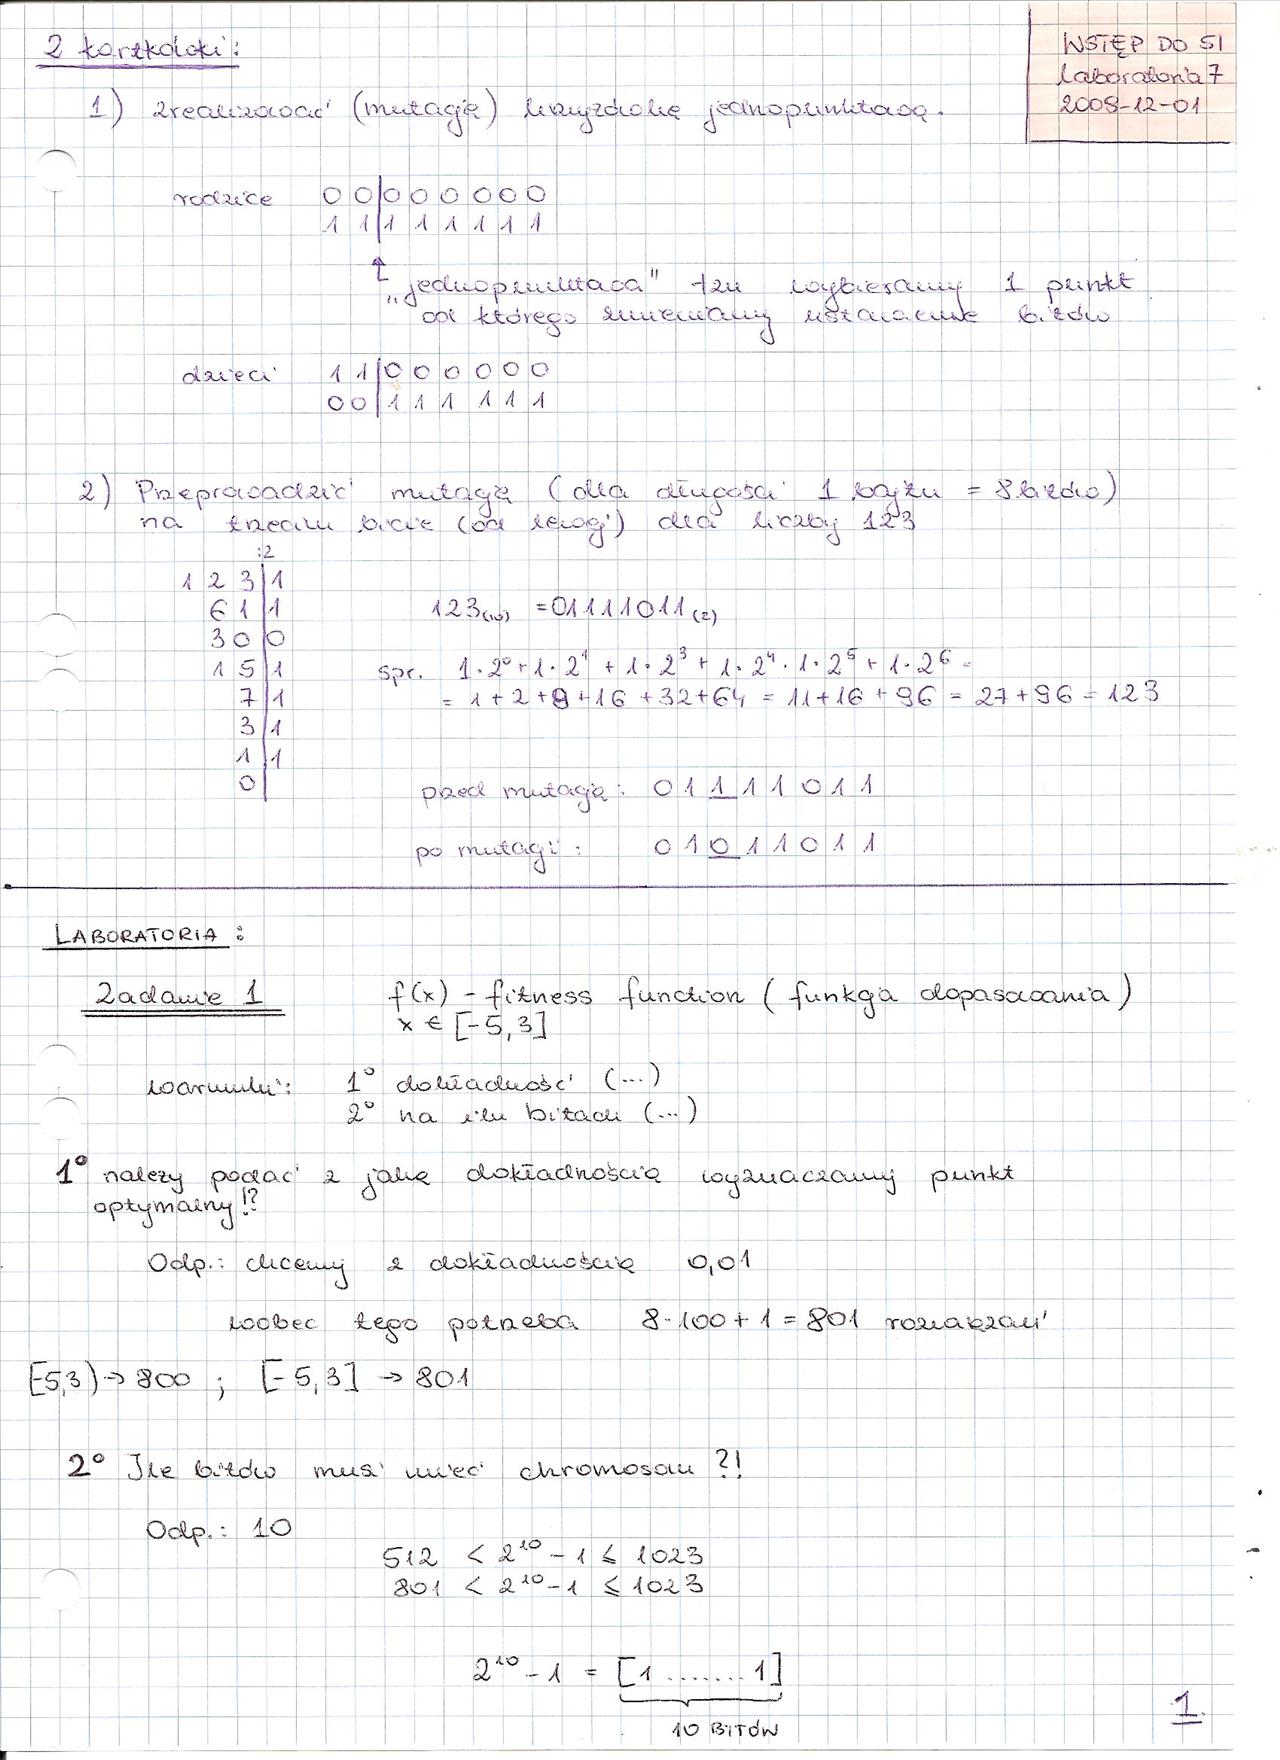 WSTĘP DO SI
Laboratoria 7
2008-12-01
Z kartkówki:
1) Zrealizować (mutację) krzyżówkę jednopunktową.
rodzice 0 0|0 0 0 0 0 0
1 1|1 1 1 1 1 1
↑
„jednopunktowa" tzn wybieramy 1 punkt
od którego zmieniamy ustawienie bitów
dzieci 1 1|0 0 0 0 0 0
0 0|1 1 1 1 1 1
2) Przeprowadzić mutację (dla długości 1 bajtu = 8 bitów)
na trzecim bicie (od lewej) dla liczby 123
:2
1 2 3|1
6 1|1
3 0|0
1 5|1
7|1
3|1
1|1
0|
123(10) = 01111011(2)
spr. 1·2⁰ + 1·2¹ + 1·2³ + 1·2⁴ · 1·2⁵ + 1·2⁶ =
= 1 + 2 + 8 + 16 + 32 + 64 = 11 + 16 + 96 = 27 + 96 = 123
przed mutacją: 0 1 1 1 1 0 1 1
po mutacji: 0 1 0 1 1 0 1 1
LABORATORIA:
Zadanie 1 f(x) - fitness function (funkcja dopasowania)
x ∈ [-5,3]
warunki: 1° dokładność (...)
2° na ilu bitach (...)
1° należy podać z jaką dokładnością wyznaczamy punkt
optymalny!?
Odp.: chcemy z dokładnością 0,01
wobec tego potrzeba 8·100+1 = 801 rozwiązań
[-5,3) → 800 ; [-5,3] → 801
2° Ile bitów musi mieć chromosom ?!
Odp.: 10
512 < 2¹⁰ - 1 ≤ 1023
801 < 2¹⁰ - 1 ≤ 1023
2¹⁰ - 1 = [1 ....... 1]
10 BITÓW
1.